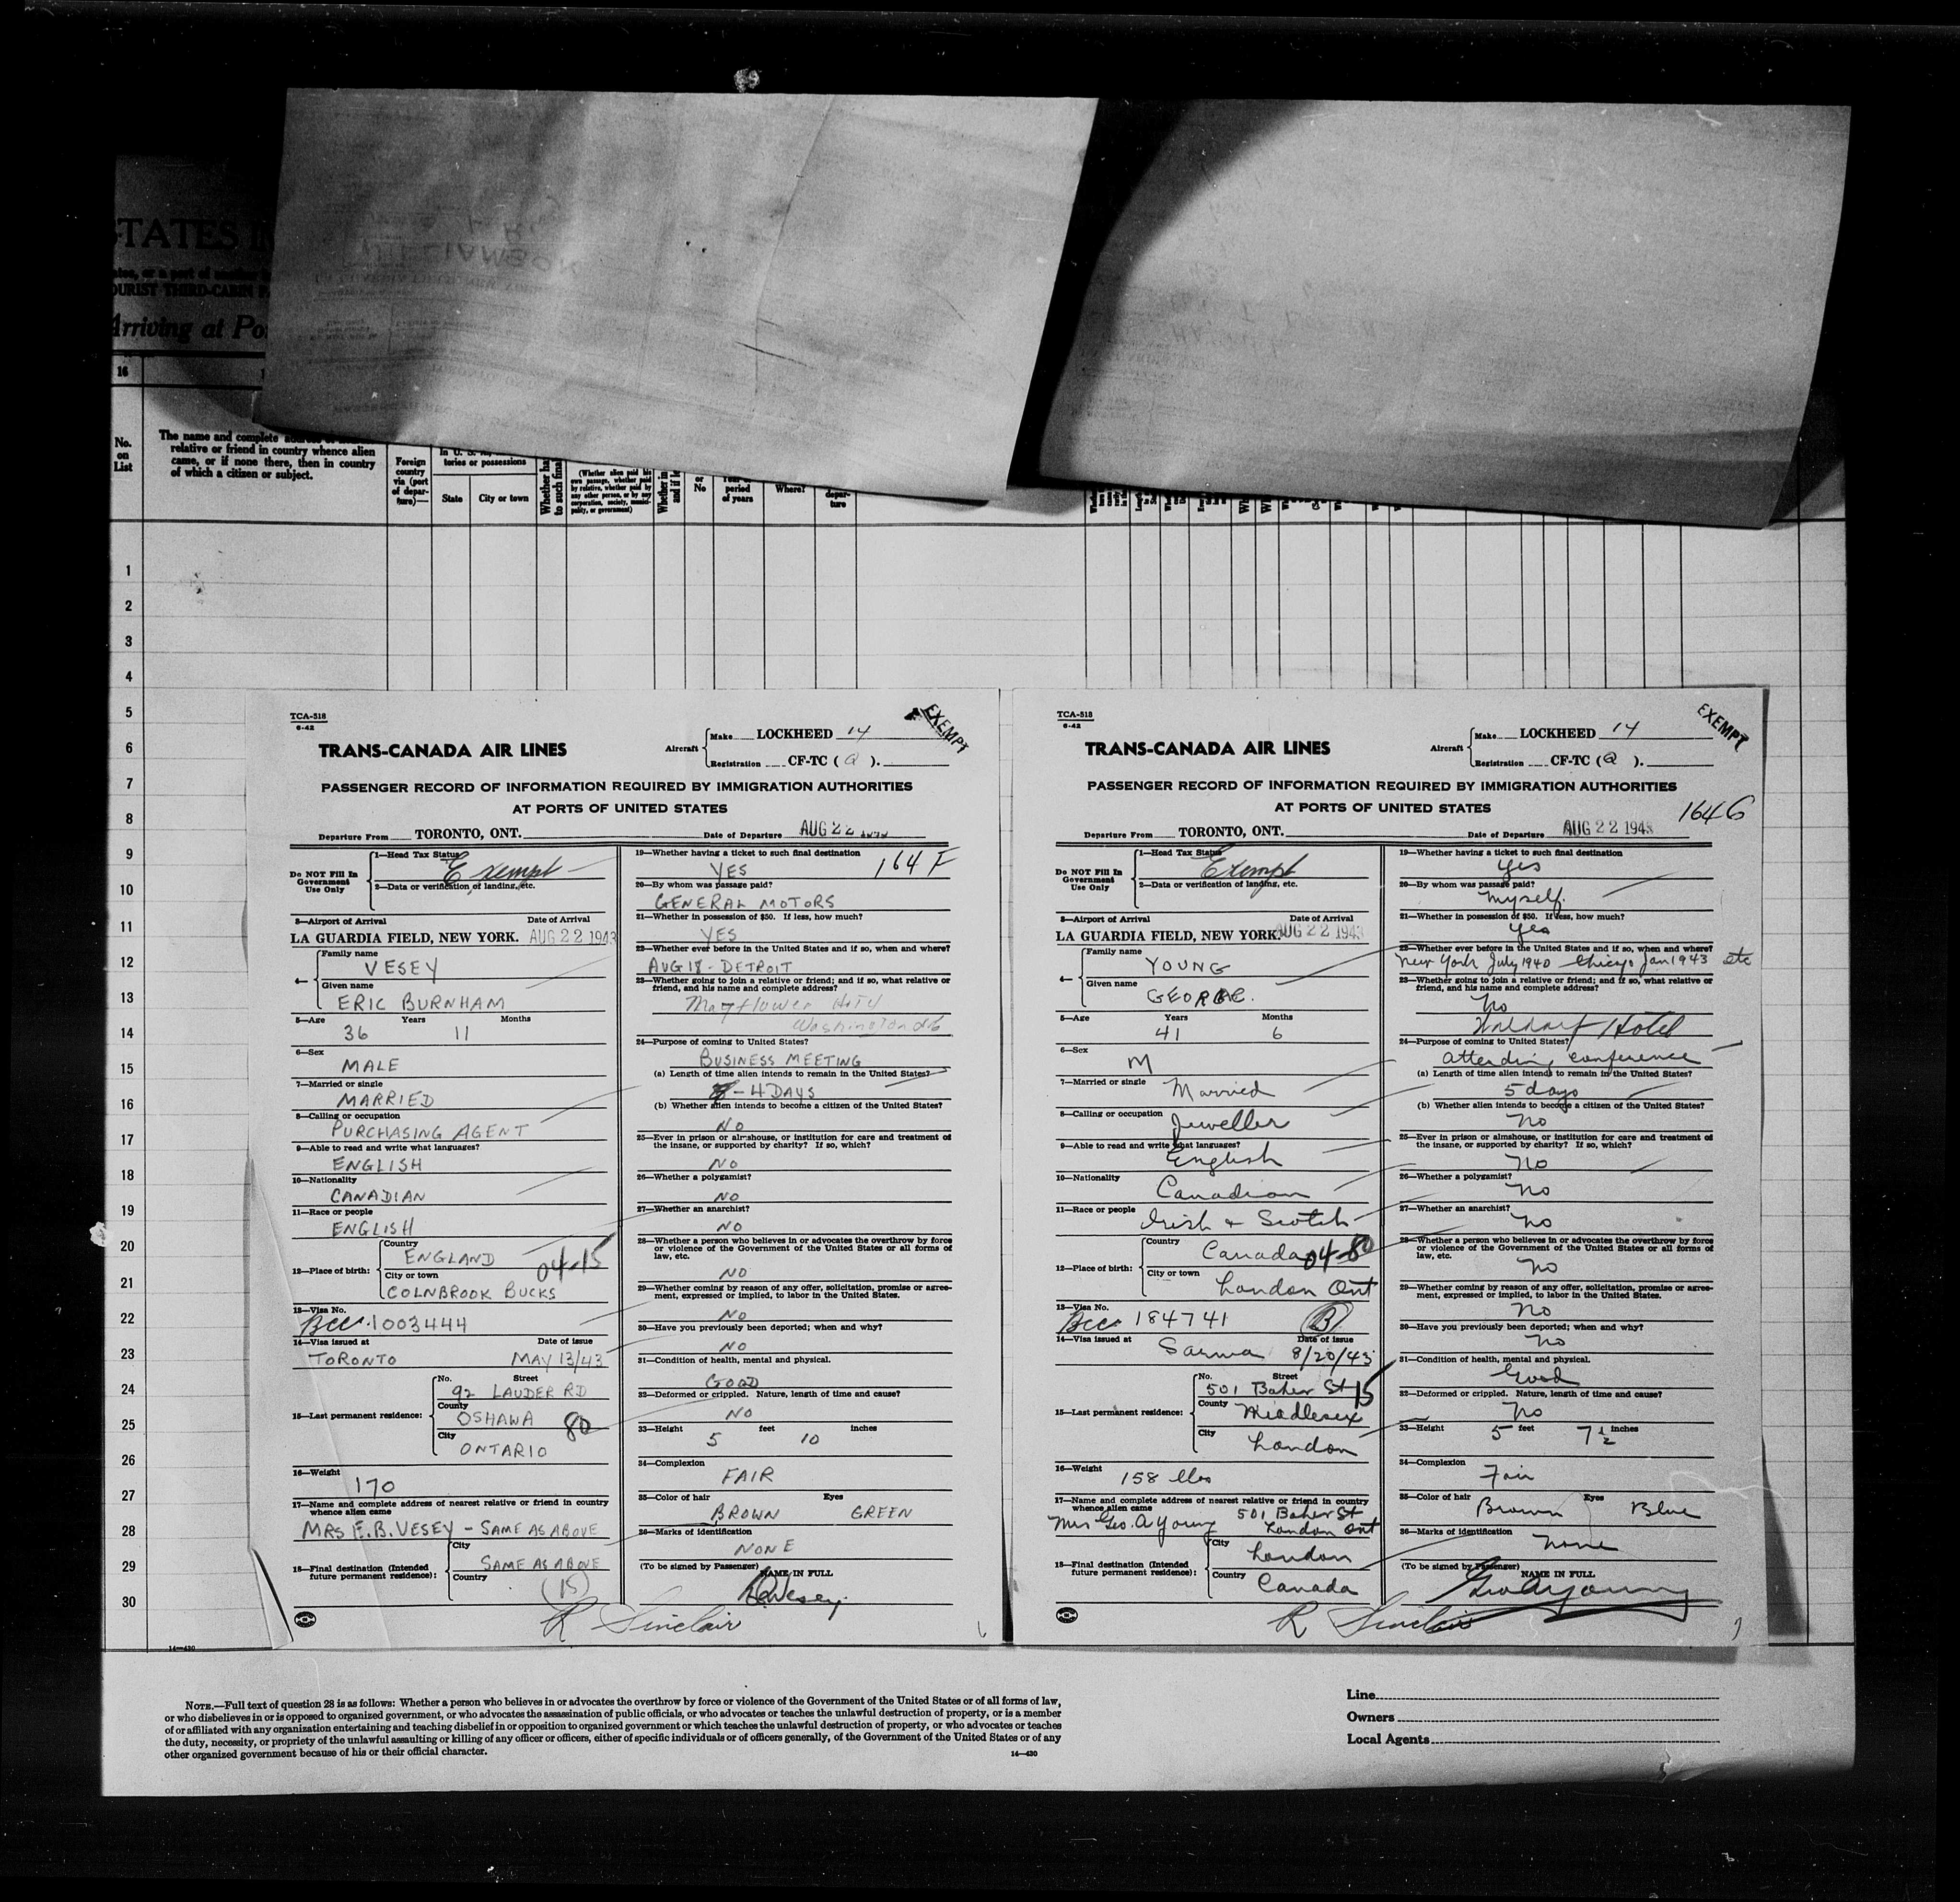 STATES
TOURIST THIRD-CABIN
Arriving at Po
16
No.
on
List
The name and complete
relative or friend in country whence alien
came, or if none there, then in country
of which a citizen or subject.
Foreign
country
via (port
of depar-
ture)—
tories or possessions
State
City or town
(Whether alien paid his
own passage, whether paid
by relative, whether paid by
any other person, or by any
corporation, society, munici-
pality, or government)
or
No
period
of years
Where?
depar-
ture
1
2
3
4
5
6
7
8
9
10
11
12
13
14
15
16
17
18
19
20
21
22
23
24
25
26
27
28
29
30
TCA-518
6-42
EXEMPT
TRANS-CANADA AIR LINES
Aircraft
Make LOCKHEED 14
Registration CF-TC (Q).
PASSENGER RECORD OF INFORMATION REQUIRED BY IMMIGRATION AUTHORITIES
AT PORTS OF UNITED STATES
Departure From TORONTO, ONT. Date of Departure AUG 22 1943
Do NOT Fill In
Government
Use Only
1—Head Tax Status
Exempt
2—Data or verification of landing, etc.
3—Airport of Arrival Date of Arrival
LA GUARDIA FIELD, NEW YORK. AUG 22 1943
4—
Family name
VESEY
Given name
ERIC BURNHAM
5—Age Years Months
36 11
6—Sex
MALE
7—Married or single
MARRIED
8—Calling or occupation
PURCHASING AGENT
9—Able to read and write what languages?
ENGLISH
10—Nationality
CANADIAN
11—Race or people
ENGLISH
12—Place of birth:
Country
ENGLAND
04-15
City or town
COLNBROOK BUCKS
13—Visa No.
BCC 1003444
14—Visa issued at Date of issue
TORONTO MAY 13/43
15—Last permanent residence:
No. Street
92 LAUDER RD
County
OSHAWA 80
City
ONTARIO
16—Weight
170
17—Name and complete address of nearest relative or friend in country
whence alien came
MRS E.B. VESEY – SAME AS ABOVE
18—Final destination (Intended
future permanent residence):
City
SAME AS ABOVE
Country
(15)
19—Whether having a ticket to such final destination
YES 164 F
20—By whom was passage paid?
GENERAL MOTORS
21—Whether in possession of $50. If less, how much?
YES
22—Whether ever before in the United States and if so, when and where?
AUG 18 - DETROIT
23—Whether going to join a relative or friend; and if so, what relative or
friend, and his name and complete address?
Mayflower Hotel
Washington DC
24—Purpose of coming to United States?
BUSINESS MEETING
(a) Length of time alien intends to remain in the United States?
- 4 DAYS
(b) Whether alien intends to become a citizen of the United States?
NO
25—Ever in prison or almshouse, or institution for care and treatment of
the insane, or supported by charity? If so, which?
NO
26—Whether a polygamist?
NO
27—Whether an anarchist?
NO
28—Whether a person who believes in or advocates the overthrow by force
or violence of the Government of the United States or all forms of
law, etc.
NO
29—Whether coming by reason of any offer, solicitation, promise or agree-
ment, expressed or implied, to labor in the United States.
NO
30—Have you previously been deported; when and why?
NO
31—Condition of health, mental and physical.
GOOD
32—Deformed or crippled. Nature, length of time and cause?
NO
33—Height 5 feet 10 inches
34—Complexion
FAIR
35—Color of hair Eyes
BROWN GREEN
36—Marks of identification
NONE
(To be signed by Passenger)
NAME IN FULL
EBVesey
R Sinclair
TCA-518
6-42
EXEMPT
TRANS-CANADA AIR LINES
Aircraft
Make LOCKHEED 14
Registration CF-TC (Q).
PASSENGER RECORD OF INFORMATION REQUIRED BY IMMIGRATION AUTHORITIES
AT PORTS OF UNITED STATES
164 G
Departure From TORONTO, ONT. Date of Departure AUG 22 1943
Do NOT Fill In
Government
Use Only
1—Head Tax Status
Exempt
2—Data or verification of landing, etc.
3—Airport of Arrival Date of Arrival
LA GUARDIA FIELD, NEW YORK. AUG 22 1943
4—
Family name
YOUNG
Given name
GEORGE.
5—Age Years Months
41 6
6—Sex
M
7—Married or single
Married
8—Calling or occupation
Jeweller
9—Able to read and write what languages?
English
10—Nationality
Canadian
11—Race or people
Irish + Scotch
12—Place of birth:
Country
Canada 04-80
City or town
London Ont
13—Visa No.
BCC 184741 (B)
14—Visa issued at Date of issue
Sarnia 8/20/43
15—Last permanent residence:
No. Street
501 Baker St 15
County
Middlesex
City
London
16—Weight
158 lbs
17—Name and complete address of nearest relative or friend in country
whence alien came
Mrs Geo. A Young 501 Baker St
London Ont
18—Final destination (Intended
future permanent residence):
City
London
Country
Canada
19—Whether having a ticket to such final destination
Yes
20—By whom was passage paid?
Myself.
21—Whether in possession of $50. If less, how much?
Yes
22—Whether ever before in the United States and if so, when and where?
New York July 1940 – Chicago Jan 1943 etc
23—Whether going to join a relative or friend; and if so, what relative or
friend, and his name and complete address?
No
Waldorf Hotel
24—Purpose of coming to United States?
Attending conference
(a) Length of time alien intends to remain in the United States?
5 days
(b) Whether alien intends to become a citizen of the United States?
No
25—Ever in prison or almshouse, or institution for care and treatment of
the insane, or supported by charity? If so, which?
No
26—Whether a polygamist?
No
27—Whether an anarchist?
No
28—Whether a person who believes in or advocates the overthrow by force
or violence of the Government of the United States or all forms of
law, etc.
No
29—Whether coming by reason of any offer, solicitation, promise or agree-
ment, expressed or implied, to labor in the United States.
No
30—Have you previously been deported; when and why?
No
31—Condition of health, mental and physical.
Good
32—Deformed or crippled. Nature, length of time and cause?
No
33—Height 5 feet 7½ inches
34—Complexion
Fair
35—Color of hair Eyes
Brown Blue
36—Marks of identification
None
(To be signed by Passenger)
NAME IN FULL
Geo A Young
R Sinclair
14—430
NOTE.—Full text of question 28 is as follows: Whether a person who believes in or advocates the overthrow by force or violence of the Government of the United States or of all forms of law,
or who disbelieves in or is opposed to organized government, or who advocates the assassination of public officials, or who advocates or teaches the unlawful destruction of property, or is a member
of or affiliated with any organization entertaining and teaching disbelief in or opposition to organized government or which teaches the unlawful destruction of property, or who advocates or teaches
the duty, necessity, or propriety of the unlawful assaulting or killing of any officer or officers, either of specific individuals or of officers generally, of the Government of the United States or of any
other organized government because of his or their official character.
14—430
Line
Owners
Local Agents